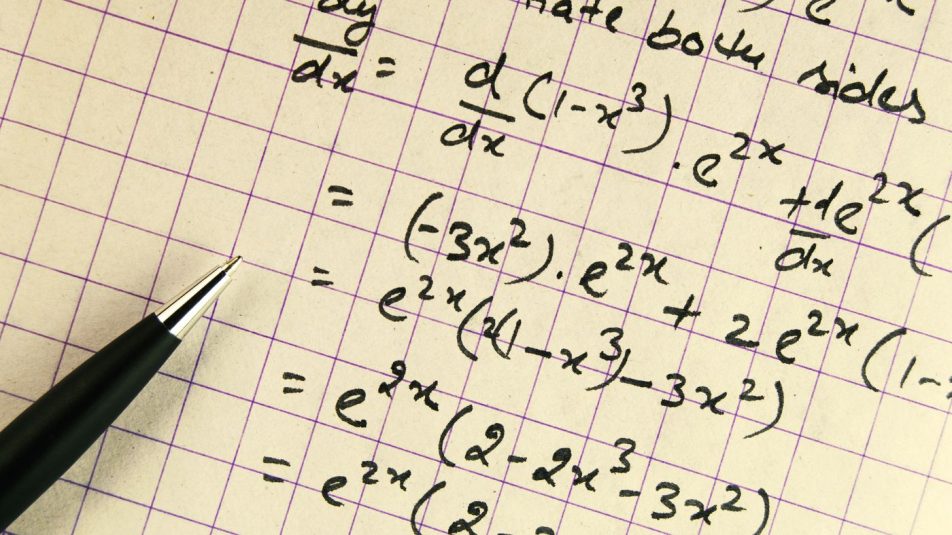 both sides
dy/dx = d/dx (1-x³) . e²ˣ + d/dx e²ˣ (
= (-3x²) . e²ˣ + 2e²ˣ (1-
= e²ˣ (2(1-x³) - 3x²)
= e²ˣ (2 - 2x³ - 3x²)
= e²ˣ (2 -